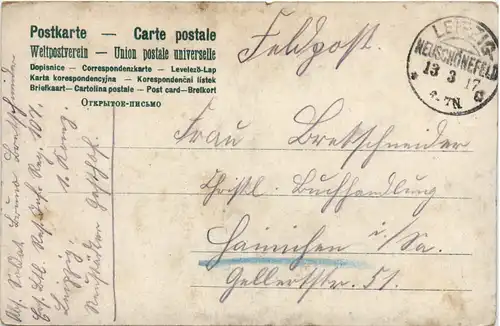 Postkarte — Carte postale
Weltpostverein — Union postale universelle
Dopisnice — Correspondenzkarte — Levelezö-Lap
Karta korespondencyjna — Korespondenční lístek
Briefkaart — Cartolina postale — Post card — Brefkort
ОТКРЫТОЕ-ПИСЬМО
Feldpost.
LEIPZIG-
NEUSCHÖNEFELD
13 3 17
4-7N.
c
Frau Bretschneider
Christl. Buchhandlung
Hainichen i/Sa.
Gellertstr. 51.
Abs. Soldat Bruno Bretschneider
Ers. Batl. Res. Inf. Reg. 107.
Leipzig, 1. Komp.
Neustädter Gasthof.